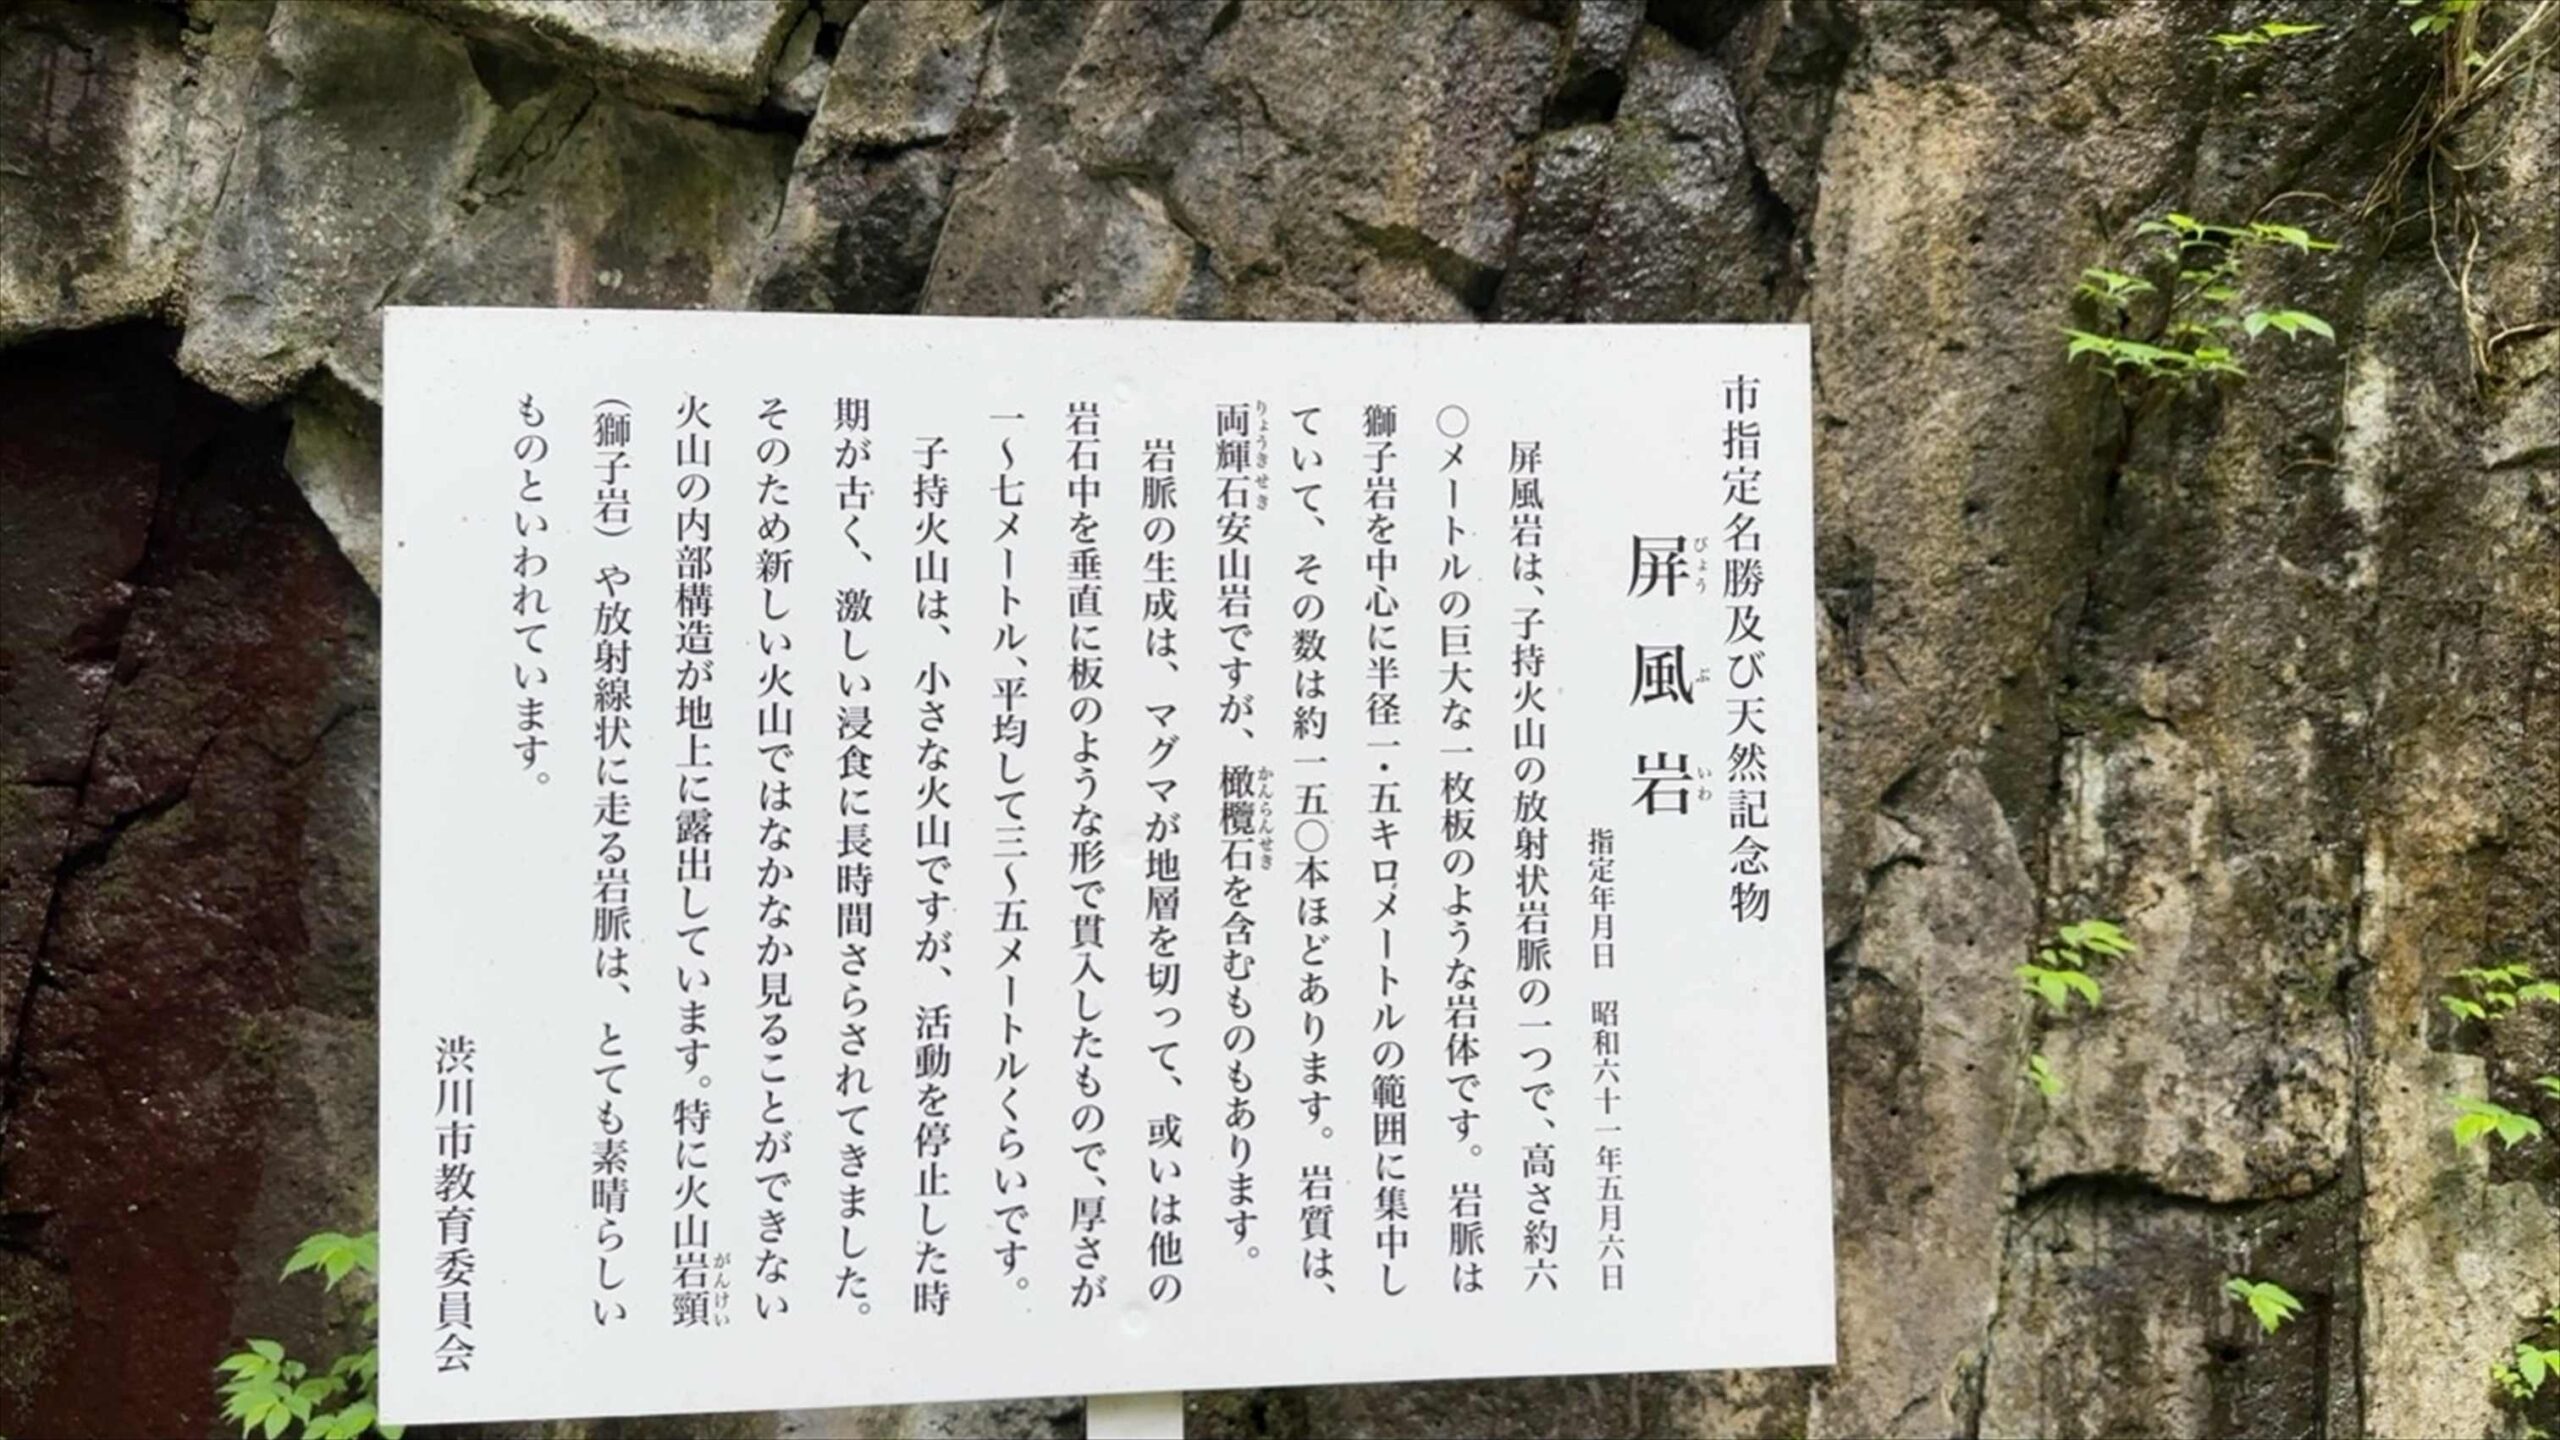 市指定名勝及び天然記念物
屏風岩
びょうぶいわ
指定年月日 昭和六十一年五月六日
屏風岩は、子持火山の放射状岩脈の一つで、高さ約六
〇メートルの巨大な一枚板のような岩体です。岩脈は
獅子岩を中心に半径一・五キロメートルの範囲に集中し
ていて、その数は約一五〇本ほどあります。岩質は、
両輝石安山岩ですが、橄欖石を含むものもあります。
りょうきせき かんらんせき
岩脈の生成は、マグマが地層を切って、或いは他の
岩石中を垂直に板のような形で貫入したもので、厚さが
一〜七メートル、平均して三〜五メートルくらいです。
子持火山は、小さな火山ですが、活動を停止した時
期が古く、激しい浸食に長時間さらされてきました。
そのため新しい火山ではなかなか見ることができない
火山の内部構造が地上に露出しています。特に火山岩頸
がんけい
（獅子岩）や放射線状に走る岩脈は、とても素晴らしい
ものといわれています。
渋川市教育委員会